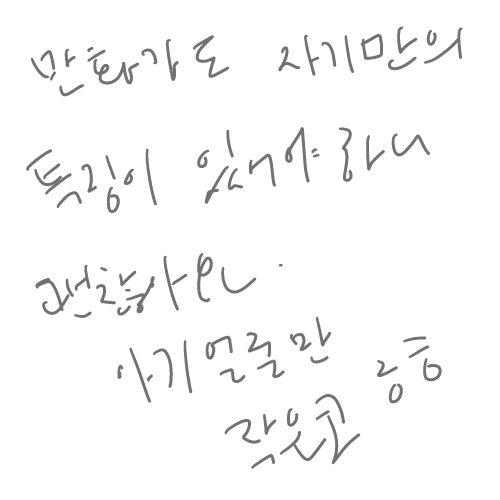 만화가도 자기만의
특징이 있어야하니
괜찮아요.
아기얼굴만
작은곰 응응